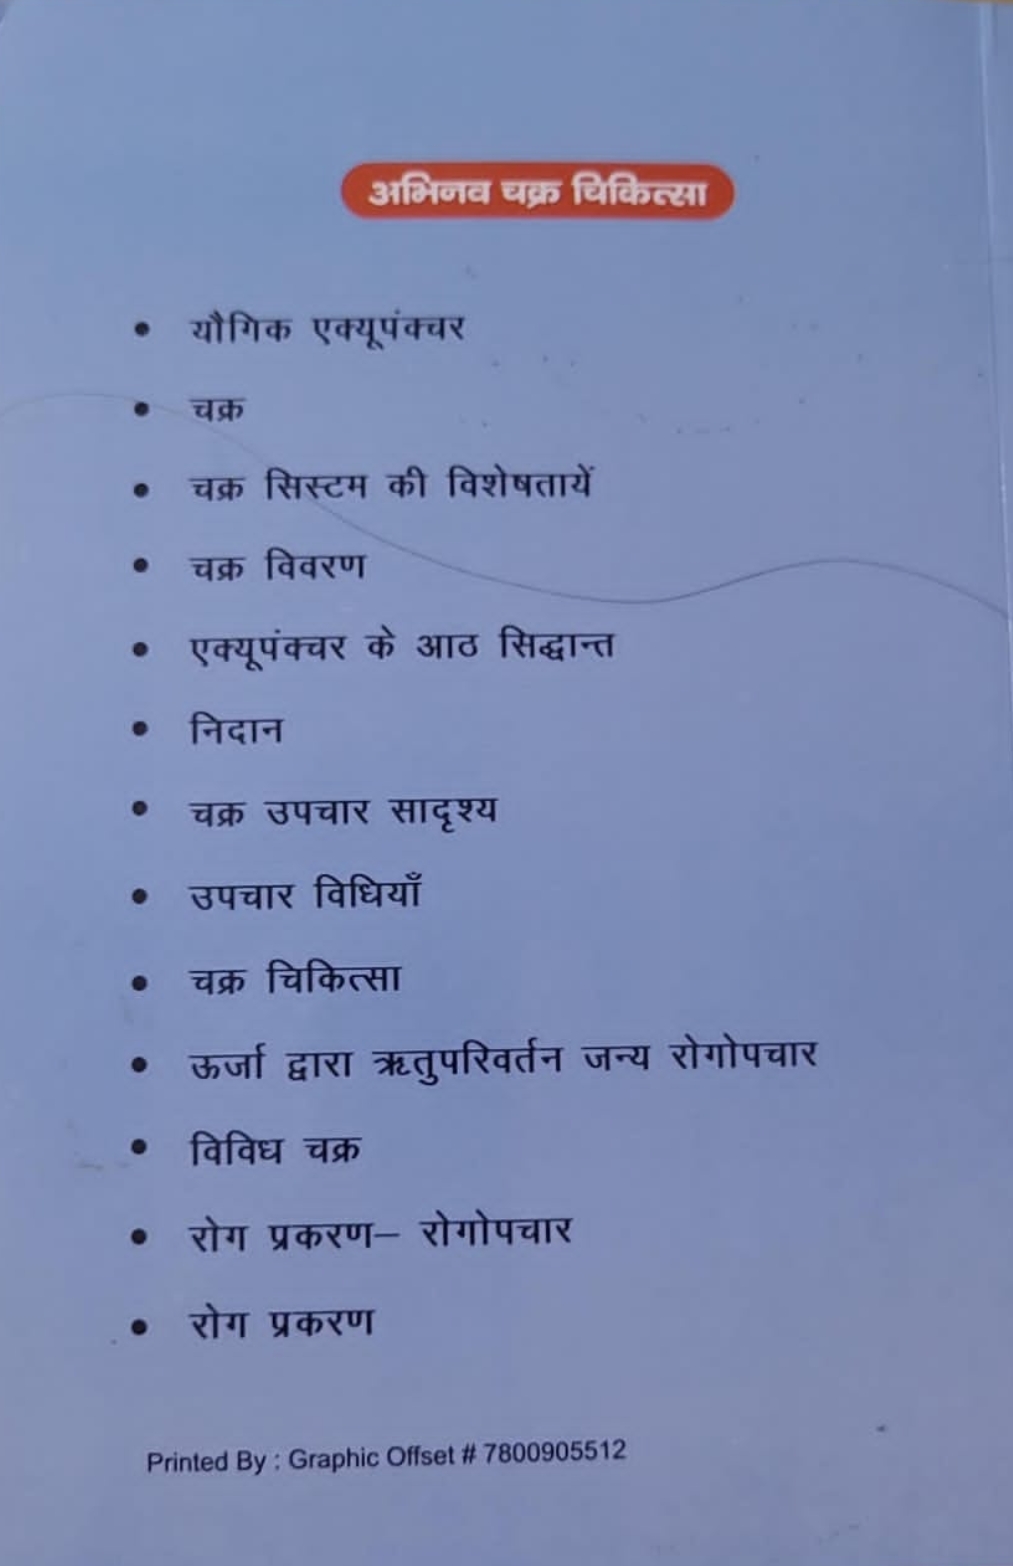 अभिनव चक्र चिकित्सा
• यौगिक एक्यूपंक्चर
• चक्र
• चक्र सिस्टम की विशेषतायें
• चक्र विवरण
• एक्यूपंक्चर के आठ सिद्धान्त
• निदान
• चक्र उपचार सादृश्य
• उपचार विधियाँ
• चक्र चिकित्सा
• ऊर्जा द्वारा ऋतुपरिवर्तन जन्य रोगोपचार
• विविध चक्र
• रोग प्रकरण– रोगोपचार
• रोग प्रकरण
Printed By : Graphic Offset # 7800905512